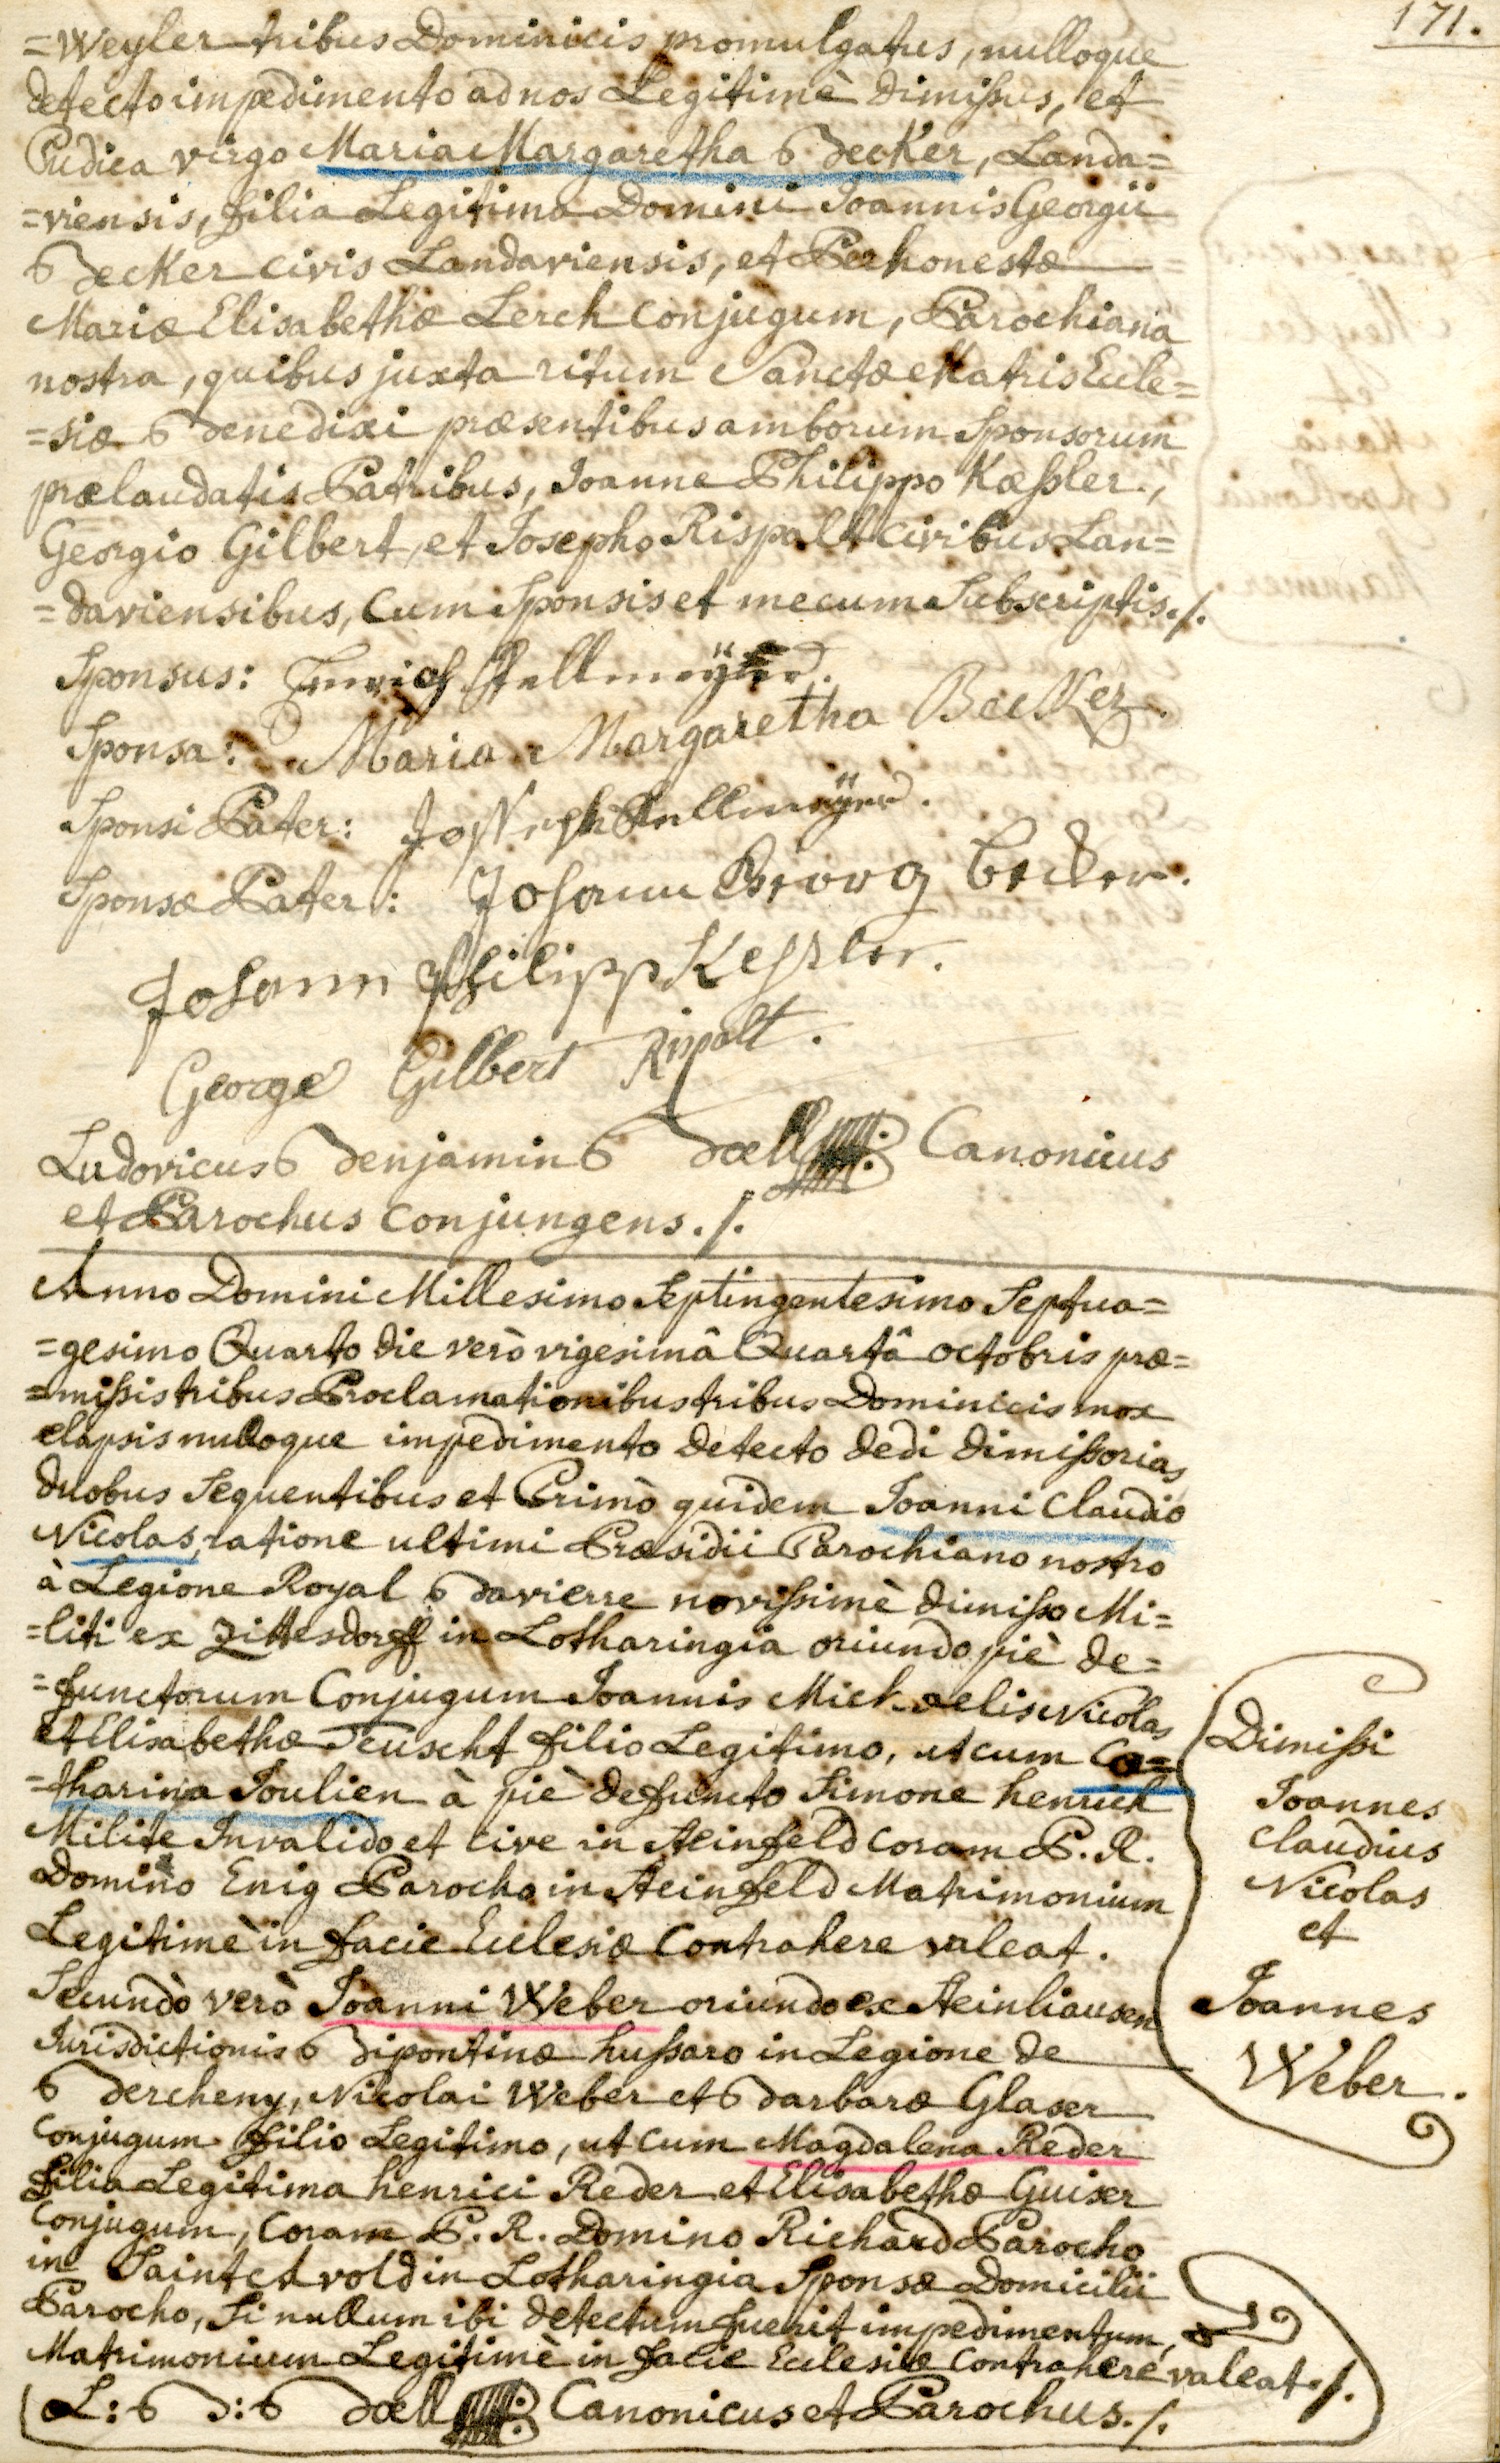 171.
=Weyler tribus Dominicis promulgatus, nulloque
detecto impædimento ad nos Legitimè dimißus, et
Pudica virgo Maria Margaretha Becker, Landa=
=viensis, filia Legitima Domini Joannis Georgii
Becker civis Landaviensis, et Perhonestæ
Mariæ Elisabethæ Lerch Conjugum, Parochiana
nostra, quibus juxta ritum Sanctæ Matris Eccle=
=siæ Benedixi præsentibus amborum Sponsorum
prælaudatis Patribus, Joanne Philippo Kæßler,
Georgio Gilbert, et Josepho Rispalt civibus Lan=
=daviensibus, Cum Sponsis et mecum Subscriptis./.
Sponsus: Henrich Stellmeÿer.
Sponsa: Maria Margaretha Becker.
Sponsi Pater: Joseph Stellmeÿer.
Sponsæ Pater: Johann Georg Becker.
Johann Philipp Keßler.
George Gilbert Rispalt.
Ludovicus Benjamin Bæll Canonicus
et Parochus conjungens./.
Anno Domini Millesimo Septingentesimo Septua=
=gesimo Quarto die verò vigesimâ Quartâ octobris præ=
=mißis tribus Proclamationibus tribus Dominicis mox
elapsis nulloque impedimento detecto dedi dimißorias
duobus Sequentibus et Primò quidem Joanni Claudio
Nicolas, ratione ultimi Præsidii Parochiano nostro
à Legione Royal Bavierre novißimè dimißo Mi=
=liti ex Zittesdorff in Lotharingia oriundo, piè de=
=functorum Conjugum Joannis Michaelis Nicolas
et Elisabethæ Teuscht filio Legitimo, ut cum Ca=
=tharina Joulien à piè defuncto Simone henrich
Milite Invalido et cive in Steinfeld coram P. R.
Domino Enig Parocho in Steinfeld Matrimonium
Legitimè in facie Ecclesiæ Contrahere valeat.
Secundò verò Joanni Weber oriundo ex Steinhausen
Jurisdictionis Bipontinæ hußaro in Legione de
Bercheny, Nicolai Weber et Barbaræ Glaser
Conjugum filio Legitimo, ut cum Magdalena Reder
filia Legitima henrici Reder et Elisabethæ Guiser
Conjugum, Coram P. R. Domino Richard Parocho
in Saint Avold in Lotharingia Sponsæ Domicilii
Parocho, Si nullum ibi detectum fuerit impedimentum,
Matrimonium Legitimè in facie Ecclesiæ Contrahere valeat./.
L: B: Bæll Canonicus et Parochus./.
Dimißi
Joannes
Claudius
Nicolas
et
Joannes
Weber.